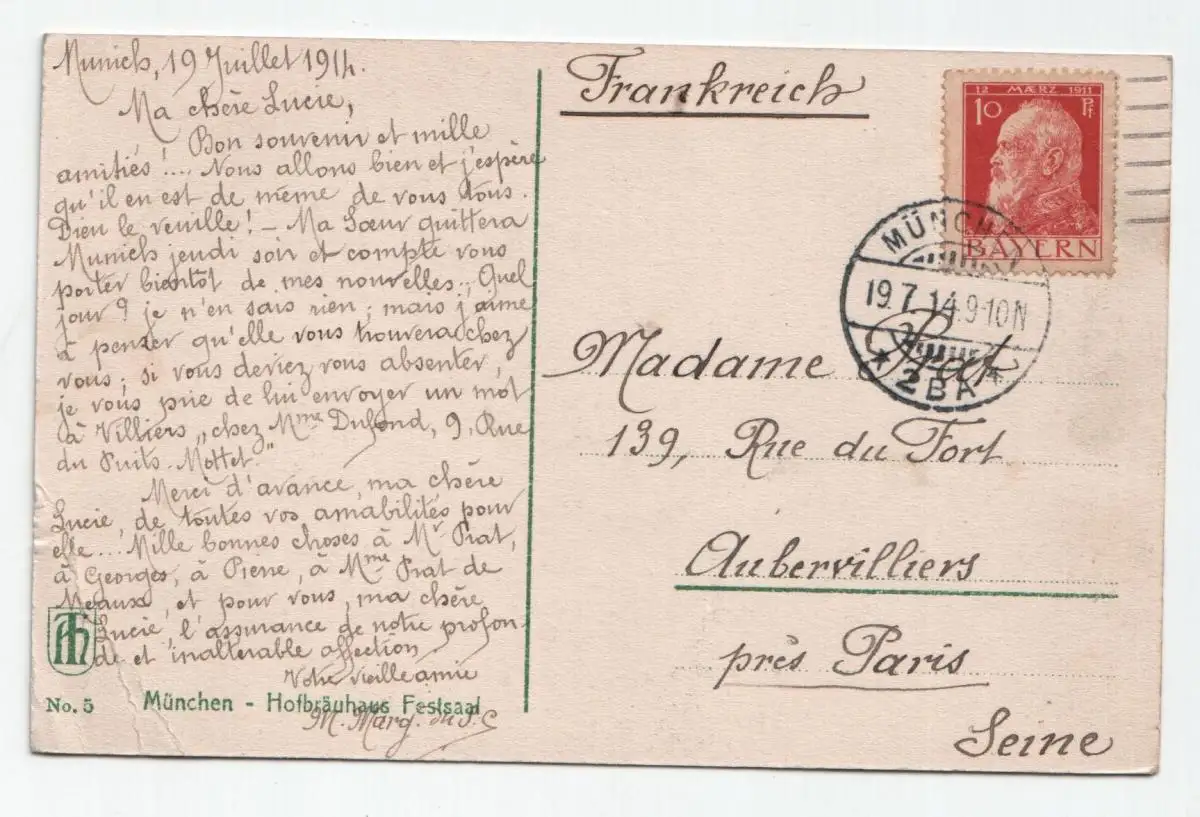 Munich, 19 Juillet 1914.
Ma chère Lucie,
Bon souvenir et mille
amitiés !.... Nous allons bien et j'espère
qu'il en est de même de vous tous.
Dieu le veuille ! - Ma Sœur quittera
Munich jeudi soir et compte vous
porter bientôt de mes nouvelles. Quel
jour ? je n'en sais rien ; mais j'aime
à penser qu'elle vous trouvera chez
vous ; si vous deviez vous absenter,
je vous prie de lui envoyer un mot
à Villiers „chez Mme Dufond, 9, Rue
du Puits-Mottet."
Merci d'avance, ma chère
Lucie, de toutes vos amabilités pour
elle.... Mille bonnes choses à Mr Prat,
à Georges, à Pierre, à Mme Prat de
Meaux, et pour vous, ma chère
Lucie, l'assurance de notre profon-
de et inaltérable affection
Votre vieille amie
M. Marg. du S. C
TH
No. 5 München - Hofbräuhaus Festsaal
Frankreich
12 MÆRZ 1911
10 Pf.
BAYERN
MÜNCHEN
19.7.14.9-10N
* 2BA *
Madame Prat
139, Rue du Fort
Aubervilliers
près Paris
Seine